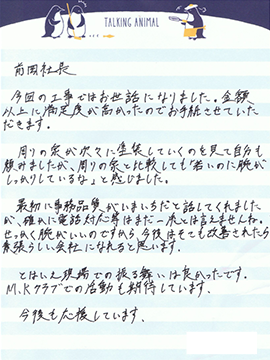 TALKING ANIMAL
前田社長
今回の工事ではお世話になりました。金額
以上に満足度が高かったのでお手紙させていた
だきます。
周りの家が次々に塗装していくのを見て自分も
頼みましたが、周りの家と比較しても「若いのに腕が
しっかりしているな」と感じました。
最初に事務品質がいまいちだと話してくれました
が、確かに電話対応等はまだ一流とは言えませんね。
せっかく腕がいいのですから、今後はそこも改善されたら
素晴らしい会社になれると思います。
とはいえ現場での振る舞いは良かったです。
M.Kクラブでの活動も期待しています。
今後も応援しています。